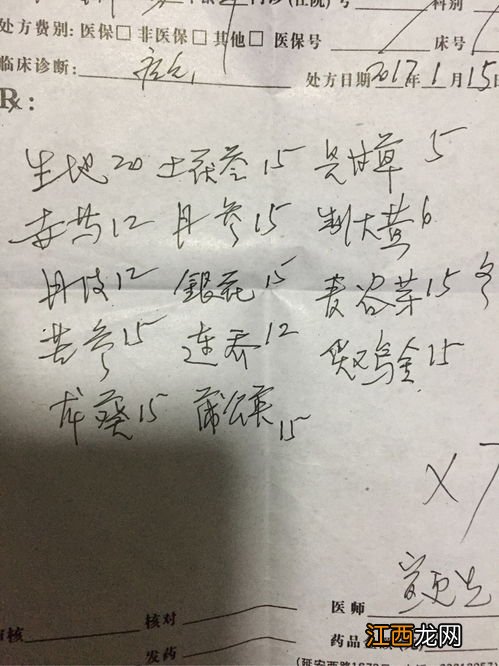 门诊(住院)号 科别
处方费别: 医保□ 非医保□ 其他□ 医保号 床号
临床诊断: 处方日期2017年1月15日
R:
生地20 土茯苓15 生甘草5
赤芍12 丹参15 制大黄6
丹皮12 银花15 麦谷芽15 各
苦参15 连乔12 炙鸡金15
龙葵15 蒲公英15
x7
医师
审核 核对 药品
发药
江西龙网